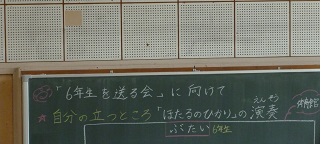 「6年生を送る会」に向けて
えんそう
★自分の立つところ 「ほたるのひかり」の演奏
体育館
ぶたい 6年生